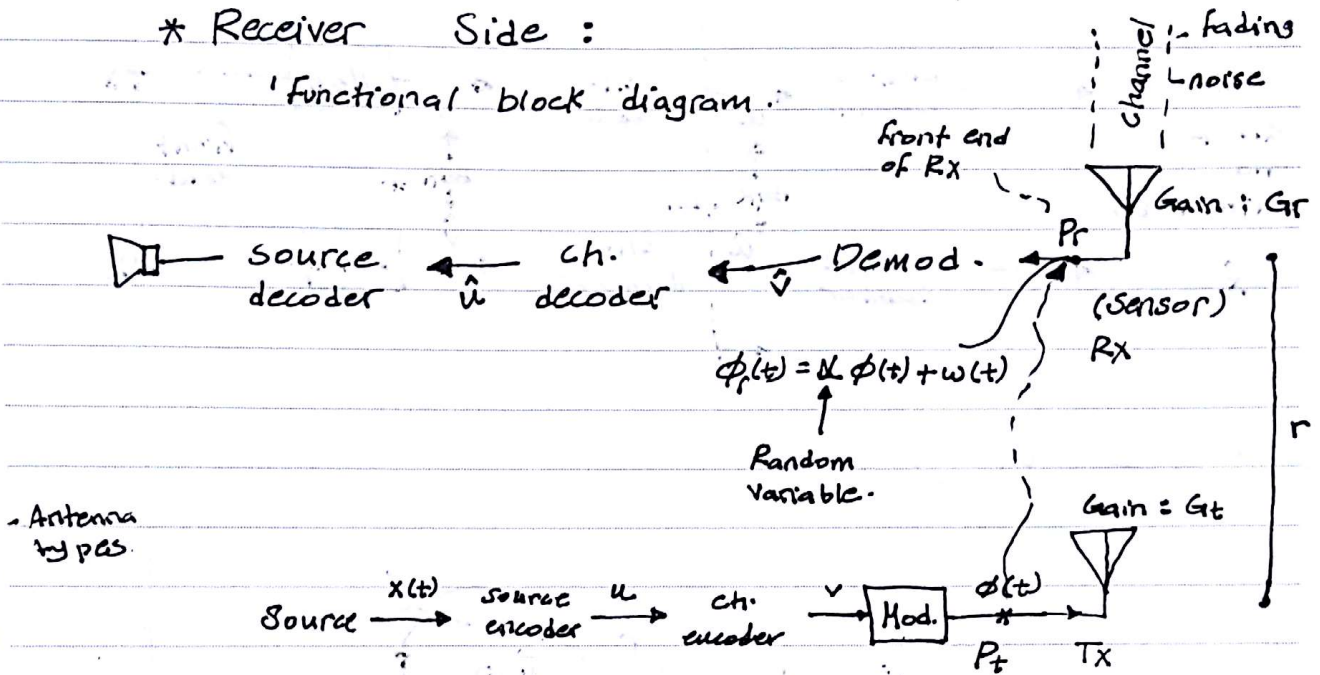 * Receiver Side :
'Functional block diagram.
Channel
fading
noise
front end
of Rx
Gain : Gr
Pr
source
decoder
û
ch.
decoder
v̂
Demod.
(Sensor)
Rx
ϕr(t) = α ϕ(t) + w(t)
Random
Variable.
r
- Antenna
types.
Gain : Gt
Source
x(t)
source
encoder
u
ch.
encoder
v
Mod.
ϕ(t)
Pt
Tx